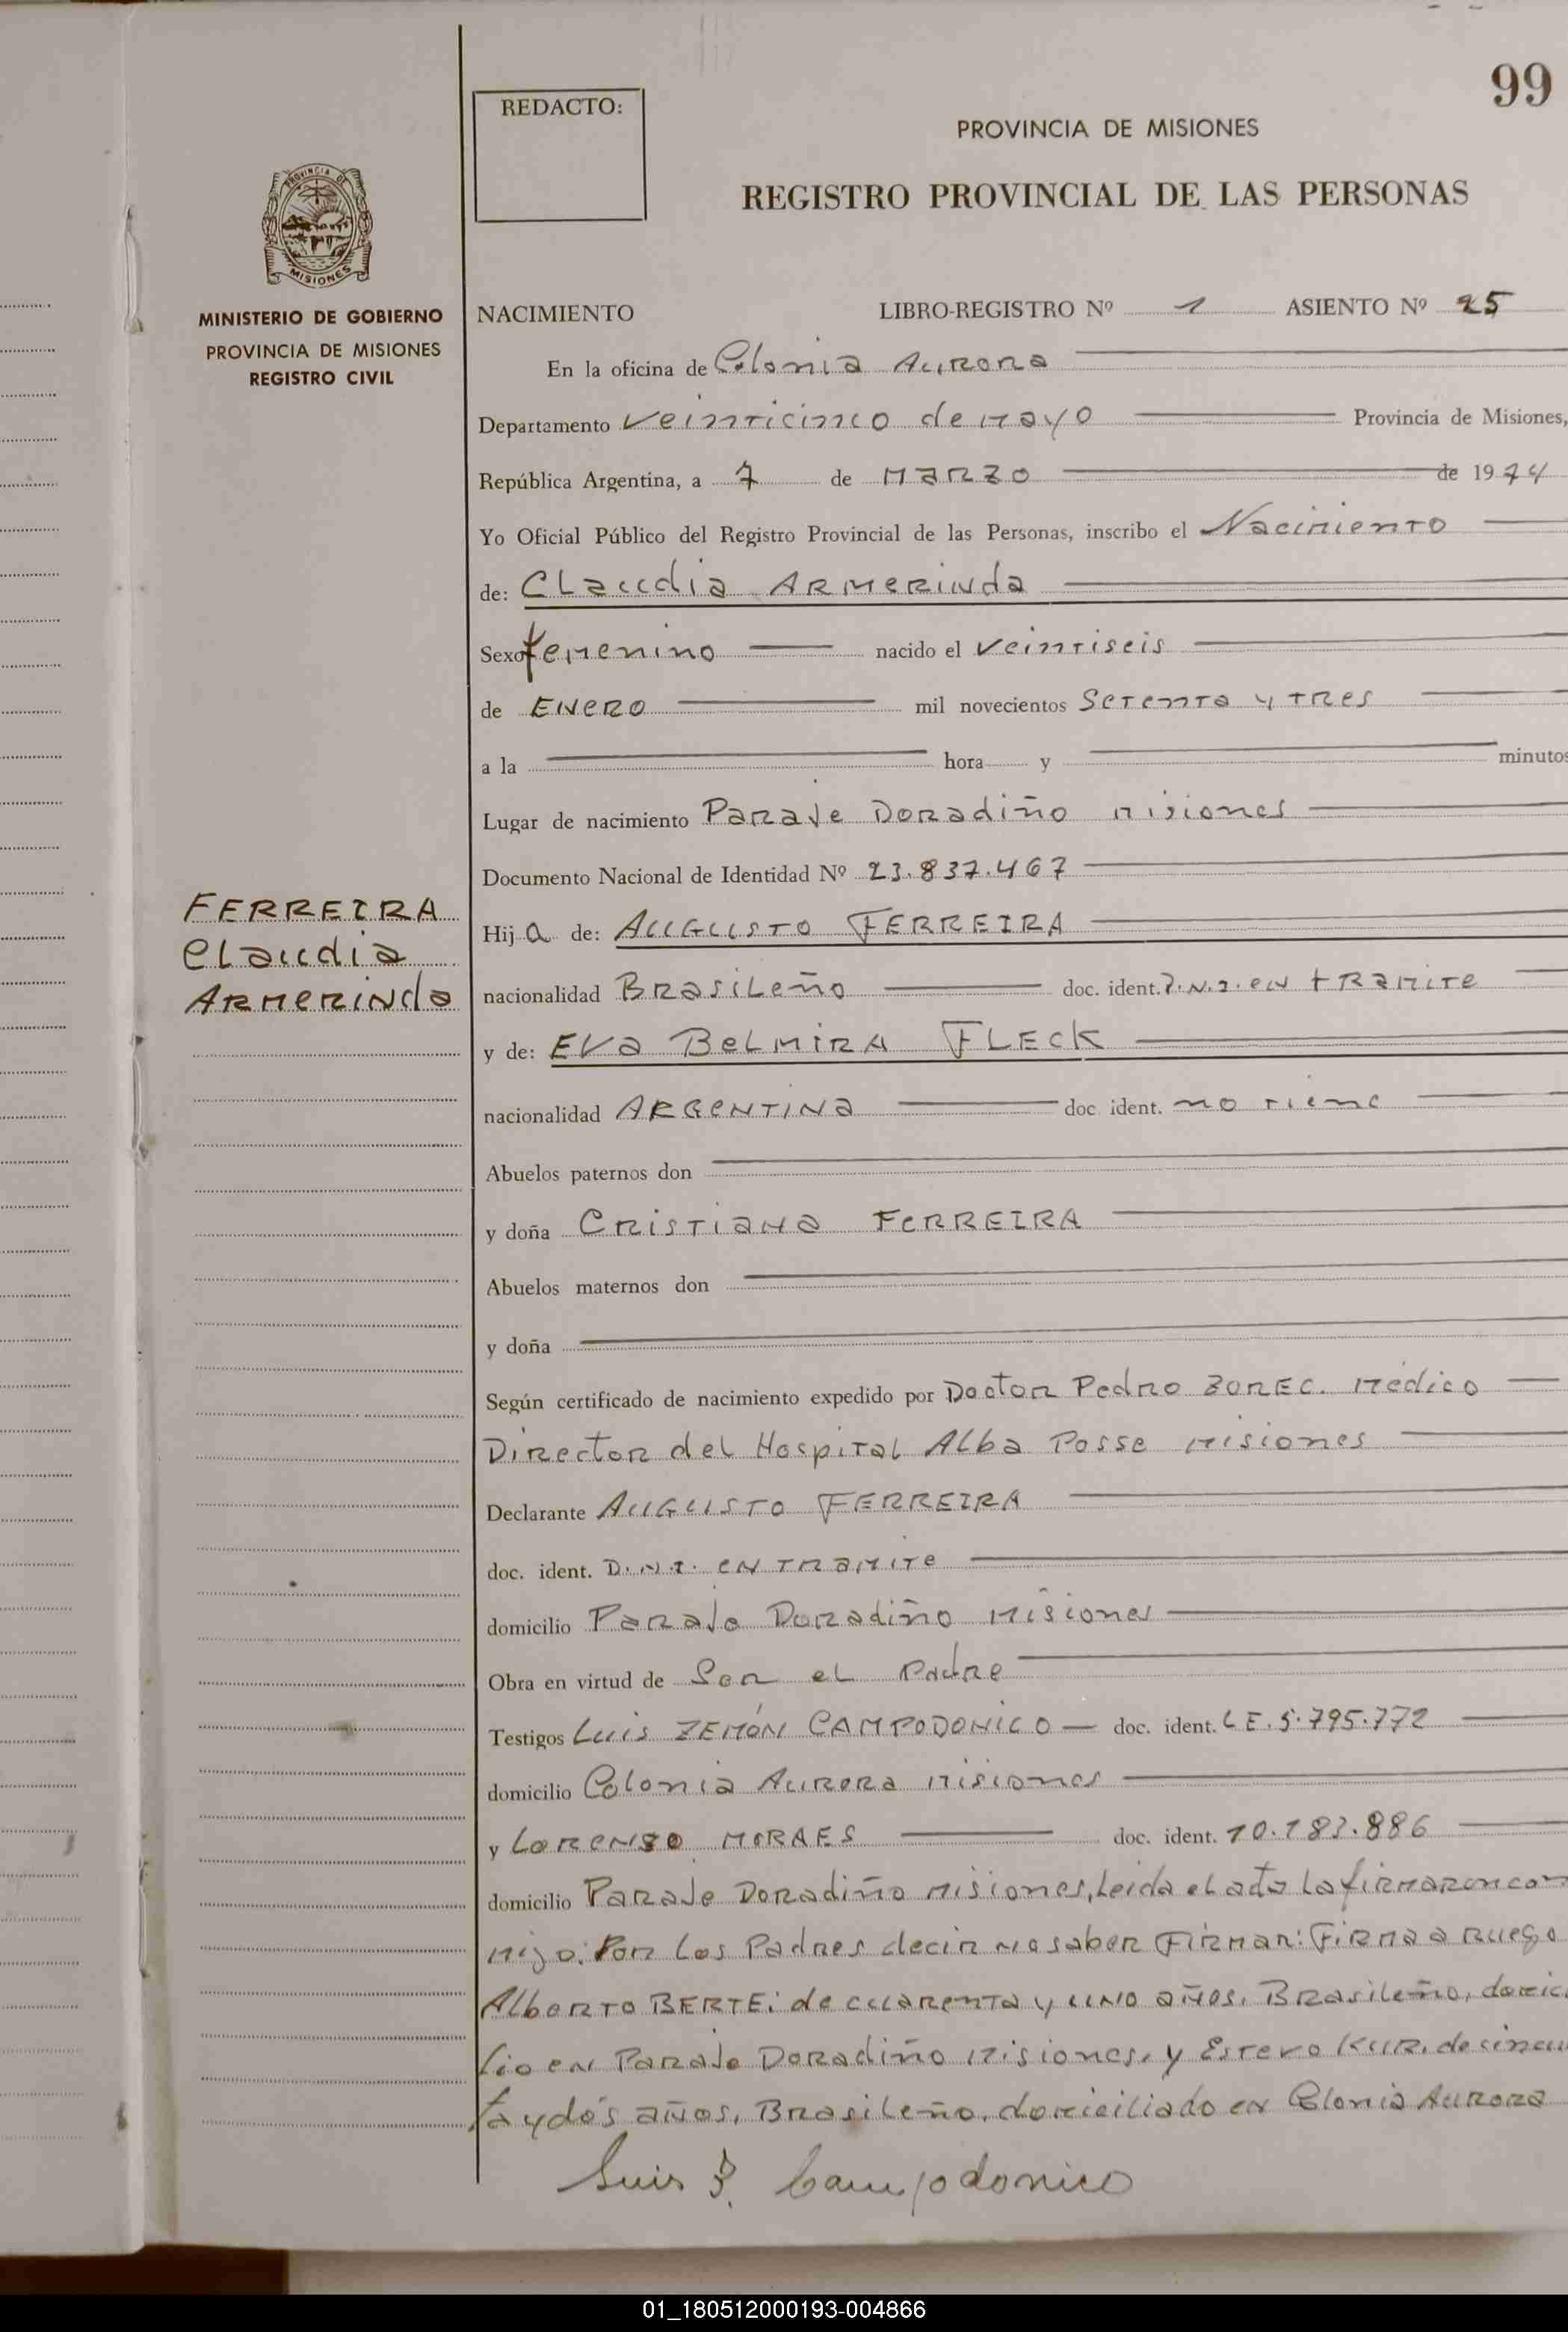 99
REDACTO:
PROVINCIA DE MISIONES
REGISTRO PROVINCIAL DE LAS PERSONAS
PROVINCIA DE
MISIONES
MINISTERIO DE GOBIERNO
PROVINCIA DE MISIONES
REGISTRO CIVIL
NACIMIENTO LIBRO-REGISTRO Nº 1 ASIENTO Nº 25
En la oficina de Colonia Aurora
Departamento veinticinco de mayo Provincia de Misiones,
República Argentina, a 7 de Marzo de 1974
Yo Oficial Público del Registro Provincial de las Personas, inscribo el Nacimiento
de: Claudia Armerinda
Sexo femenino nacido el veintiseis
de Enero mil novecientos Setenta y tres
a la hora y minutos
Lugar de nacimiento Paraje Doradiño misiones
Documento Nacional de Identidad Nº 23.837.467
FERREIRA
Claudia
Armerinda
Hij a de: Augusto FERREIRA
nacionalidad Brasileño doc. ident. D.N.I. en tramite
y de: Eva Belmira FLECK
nacionalidad Argentina doc ident. no tiene
Abuelos paternos don
y doña Cristiana FERREIRA
Abuelos maternos don
y doña
Según certificado de nacimiento expedido por Doctor Pedro ZOREC. Médico
Director del Hospital Alba Posse misiones
Declarante Augusto FERREIRA
doc. ident. D.N.I. en tramite
domicilio Paraje Doradiño misiones
Obra en virtud de Ser el Padre
Testigos Luis ZEMÓN CAMPODONICO doc. ident. L E. 5.795.772
domicilio Colonia Aurora misiones
y Lorenso MORAES doc. ident. 10.183.886
domicilio Paraje Doradiño misiones, Leida el acta la firmaron con
migo. Por los Padres decir no saber Firmar: Firma a Ruego
Alberto BERTE: de cuarenta y uno años, Brasileño, domici
lio en Paraje Doradiño misiones, y Estevo KUR, de cincu
ta y dós años, Brasileño, domiciliado en Colonia Aurora
Luis Z. Campodonico
01_180512000193-004866